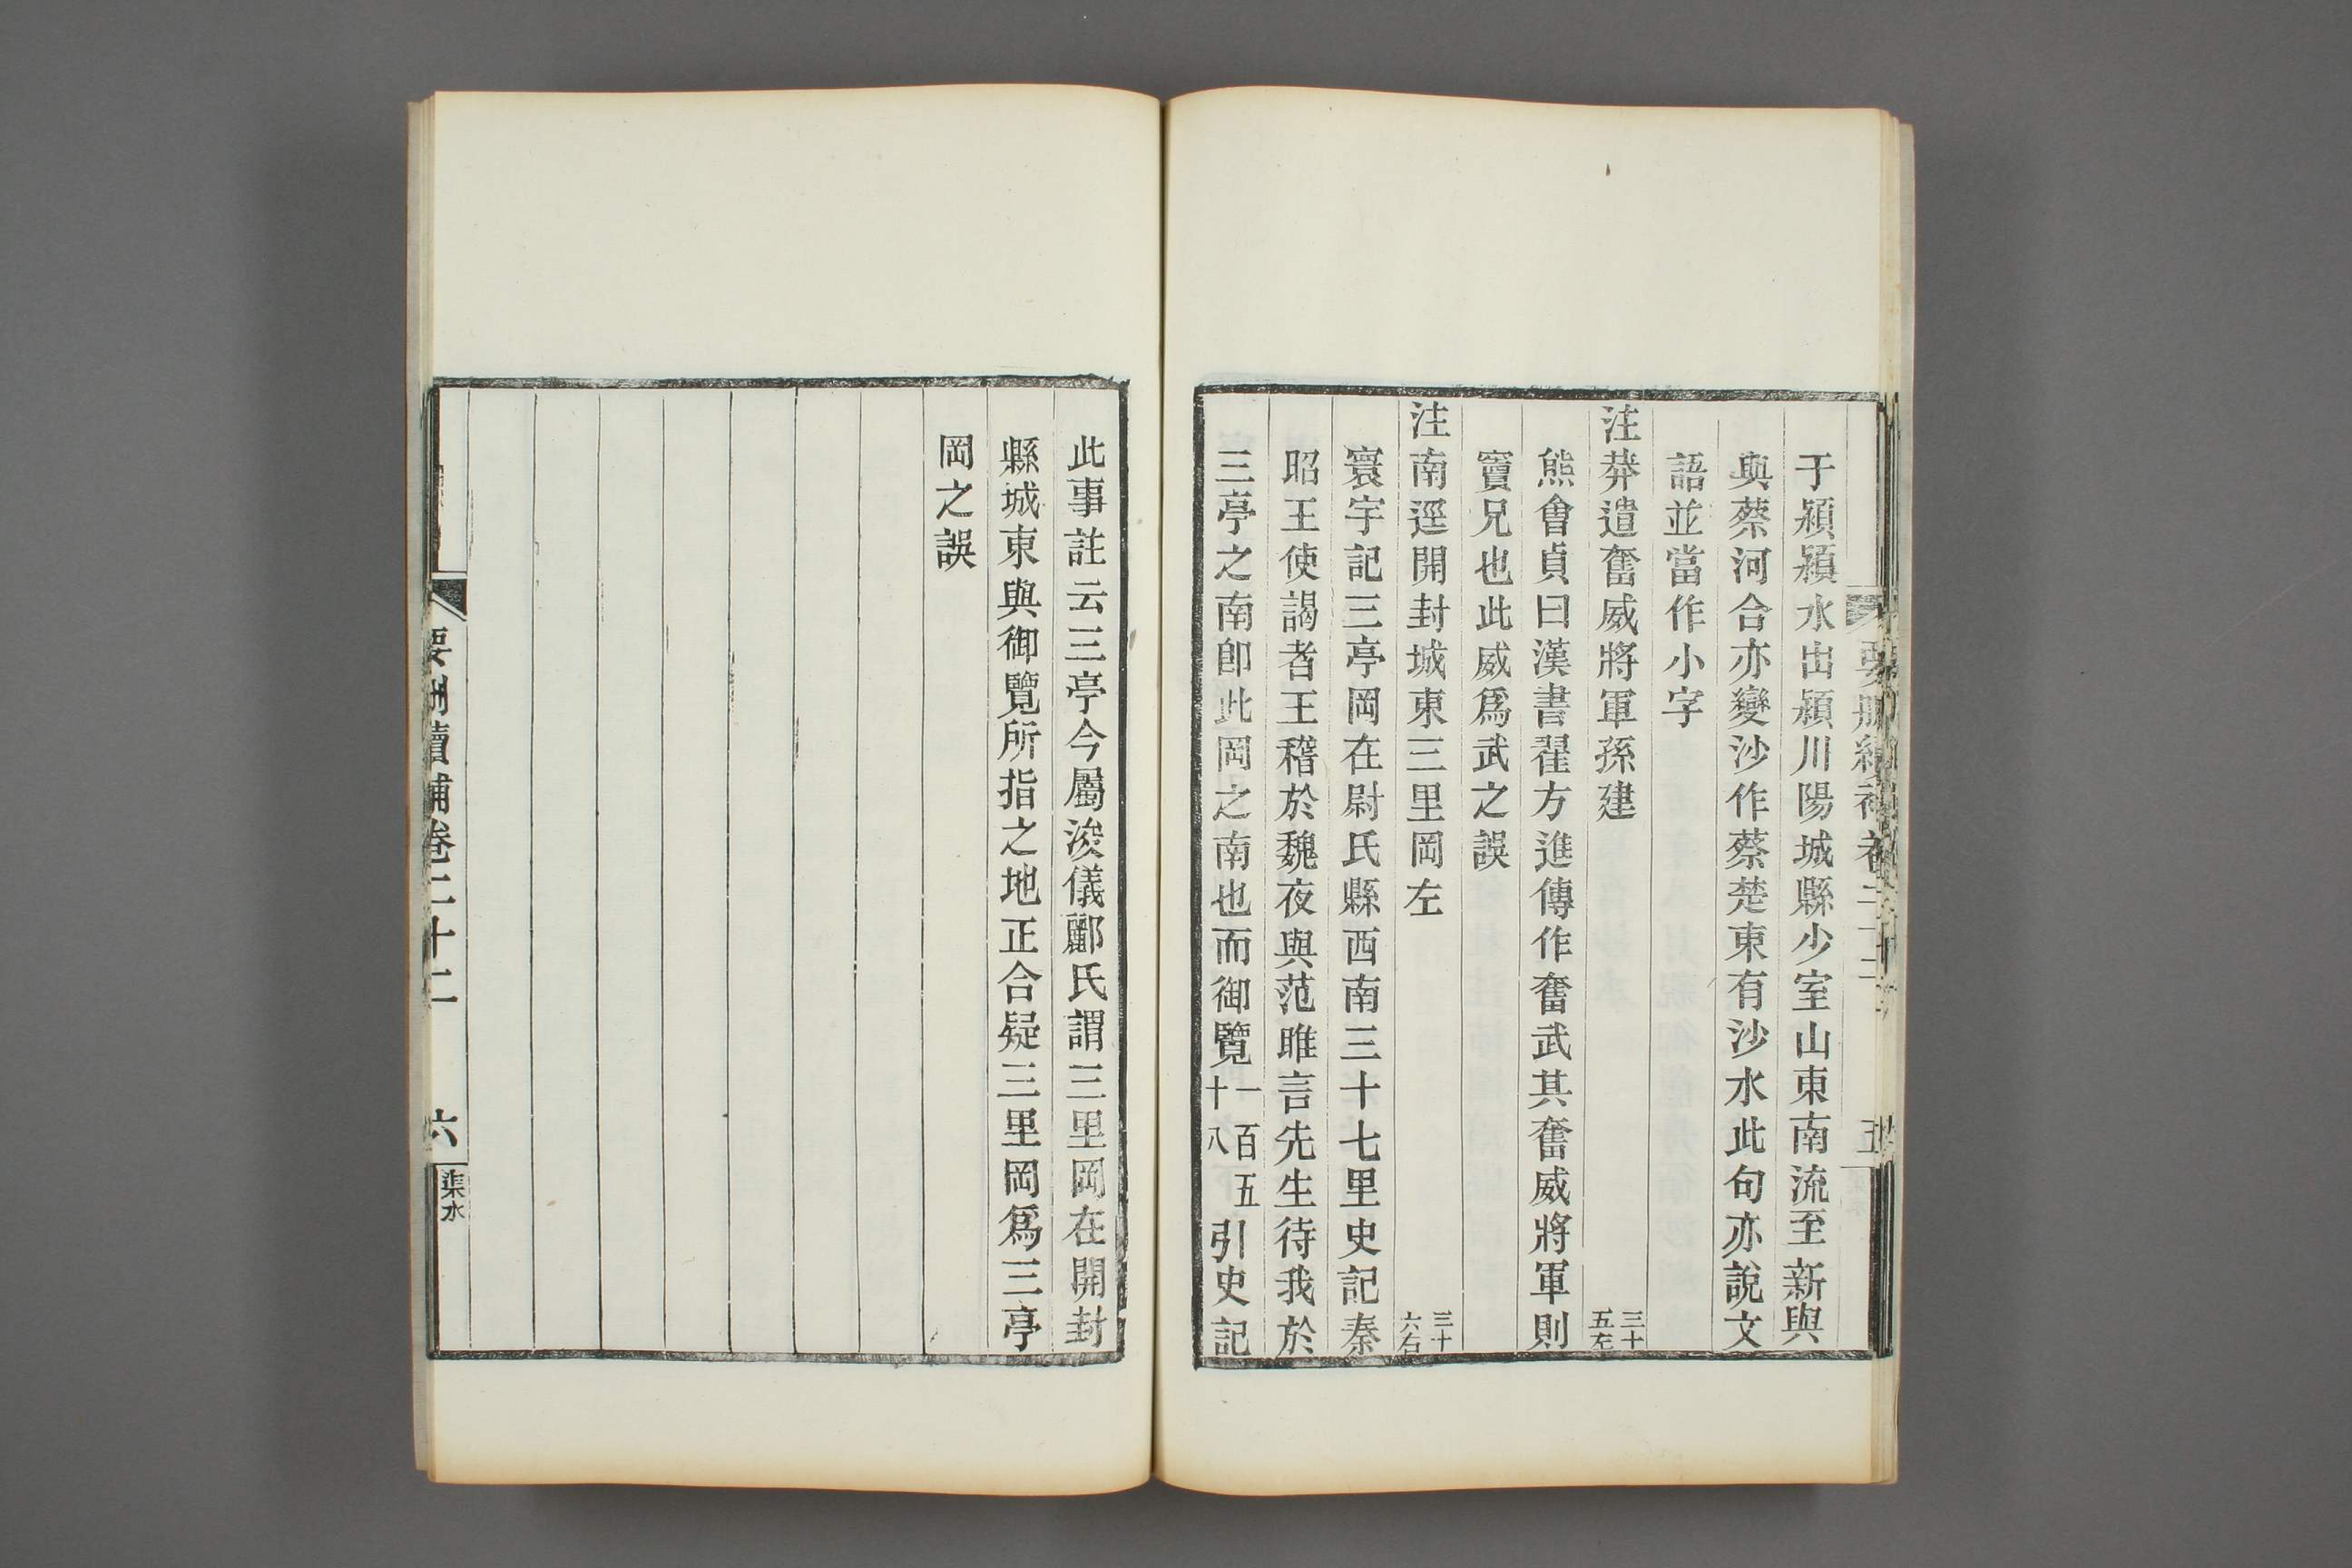 于潁潁水出潁川陽城縣少室山東南流至新與
與蔡河合亦變沙作蔡楚東有沙水此句亦說文
語並當作小字
注莽遣奮威將軍孫建三十五左
熊會貞曰漢書翟方進傳作奮武其奮威將軍則
竇兄也此威爲武之誤
注南逕開封城東三里岡左三十六右
寰宇記三亭岡在尉氏縣西南三十七里史記秦
昭王使謁者王稽於魏夜與范雎言先生待我於
三亭之南卽此岡之南也而御覽一百五十八引史記
此事註云三亭今屬浚儀酈氏謂三里岡在開封
縣城東與御覽所指之地正合疑三里岡爲三亭
岡之誤
要刪續補卷二十二 六 渠水